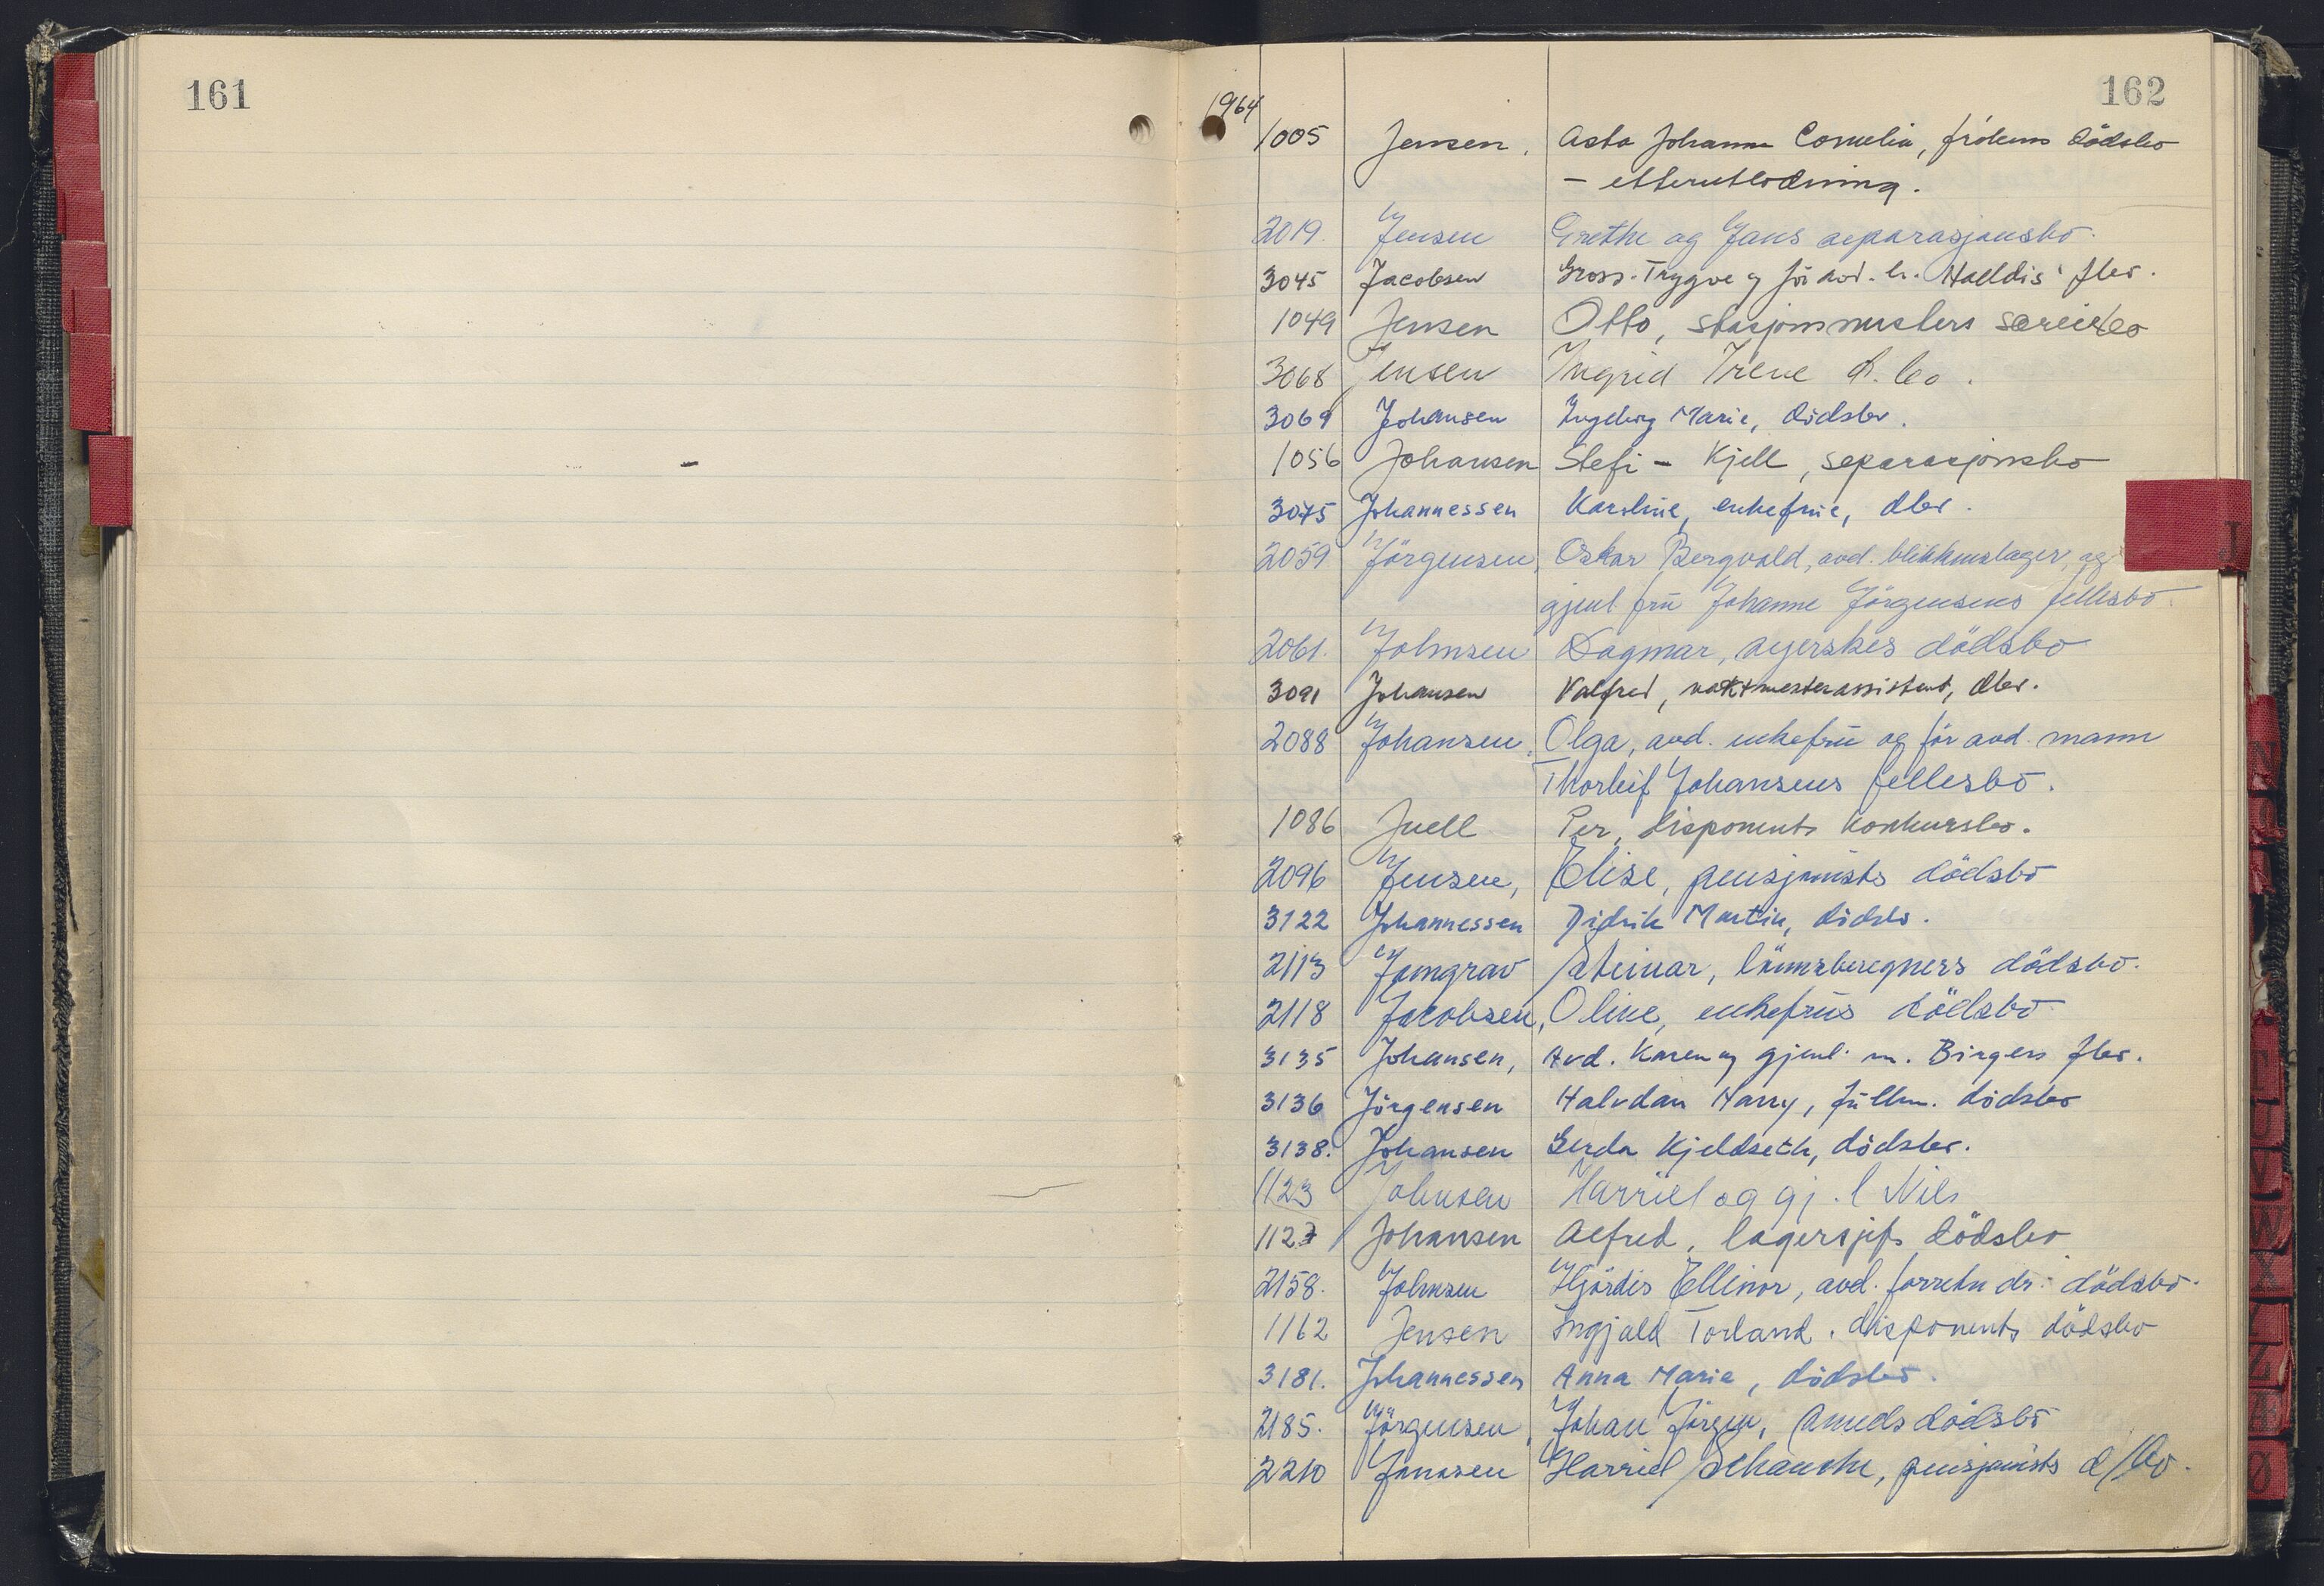 161
162
1964
1005 Jensen, Asta Johanne Cornelia, frøkens dödsbo
- etterutlodning.
2019. Jensen Grethe og Jans separasjonsbo.
3045 Jacobsen Gross. Trygve og för avd. h. Halldis' fbo.
1049 Jensen Otto, stasjonsmesters særeiebo
3068 Jensen Ingrid Irene d. bo.
3069 Johansen Ingeborg Marie, dödsbo.
1056 Johansen Stefi - Kjell, separasjonsbo
3075 Johannessen Karoline, enkefrue, dbo.
J
2059 Jörgensen, Oskar Bergvald, avd. blikkenslager, og
gjenl fru Johanne Jörgensens fellesbo.
2061. Johnsen Dagmar, syerskes dödsbo
3091 Johansen Valfred, vaktmesterassistent, dbo.
2088 Johansen, Olga, avd. enkefru og för avd. mann
Thorleif Johansens fellesbo.
1086 Juell Per, disponents konkursbo.
2096 Jensen, Elise, pensjonists dödsbo
3122 Johannessen Didrik Martin, dödsbo.
2113 Jomgrav Steinar, lönnsberegners dödsbo.
2118 Jacobsen, Oline, enkefrus dödsbo
3135 Johansen, Avd. Karen og gjenl. m. Birgers fbo.
3136 Jörgensen Halvdan Harry, fullm. dödsbo
3138. Johansen Gerda Kjeldseth, dödsbo.
1123 Johnsen Harriet og gj. l Nils
1127 Johansen Alfred, lagersjefs dödsbo
2158. Johnsen Hjördis Ellinor, avd. forretn dr. dödsbo.
1162 Jensen Ingjald Torland, disponents dödsbo
3181. Johannessen Anna Marie, dödsbo.
2185. Jörgensen, Johan Jörgen, dödsbo
2210 Jonasen Harriet Schanche, pensjonists d/bo.